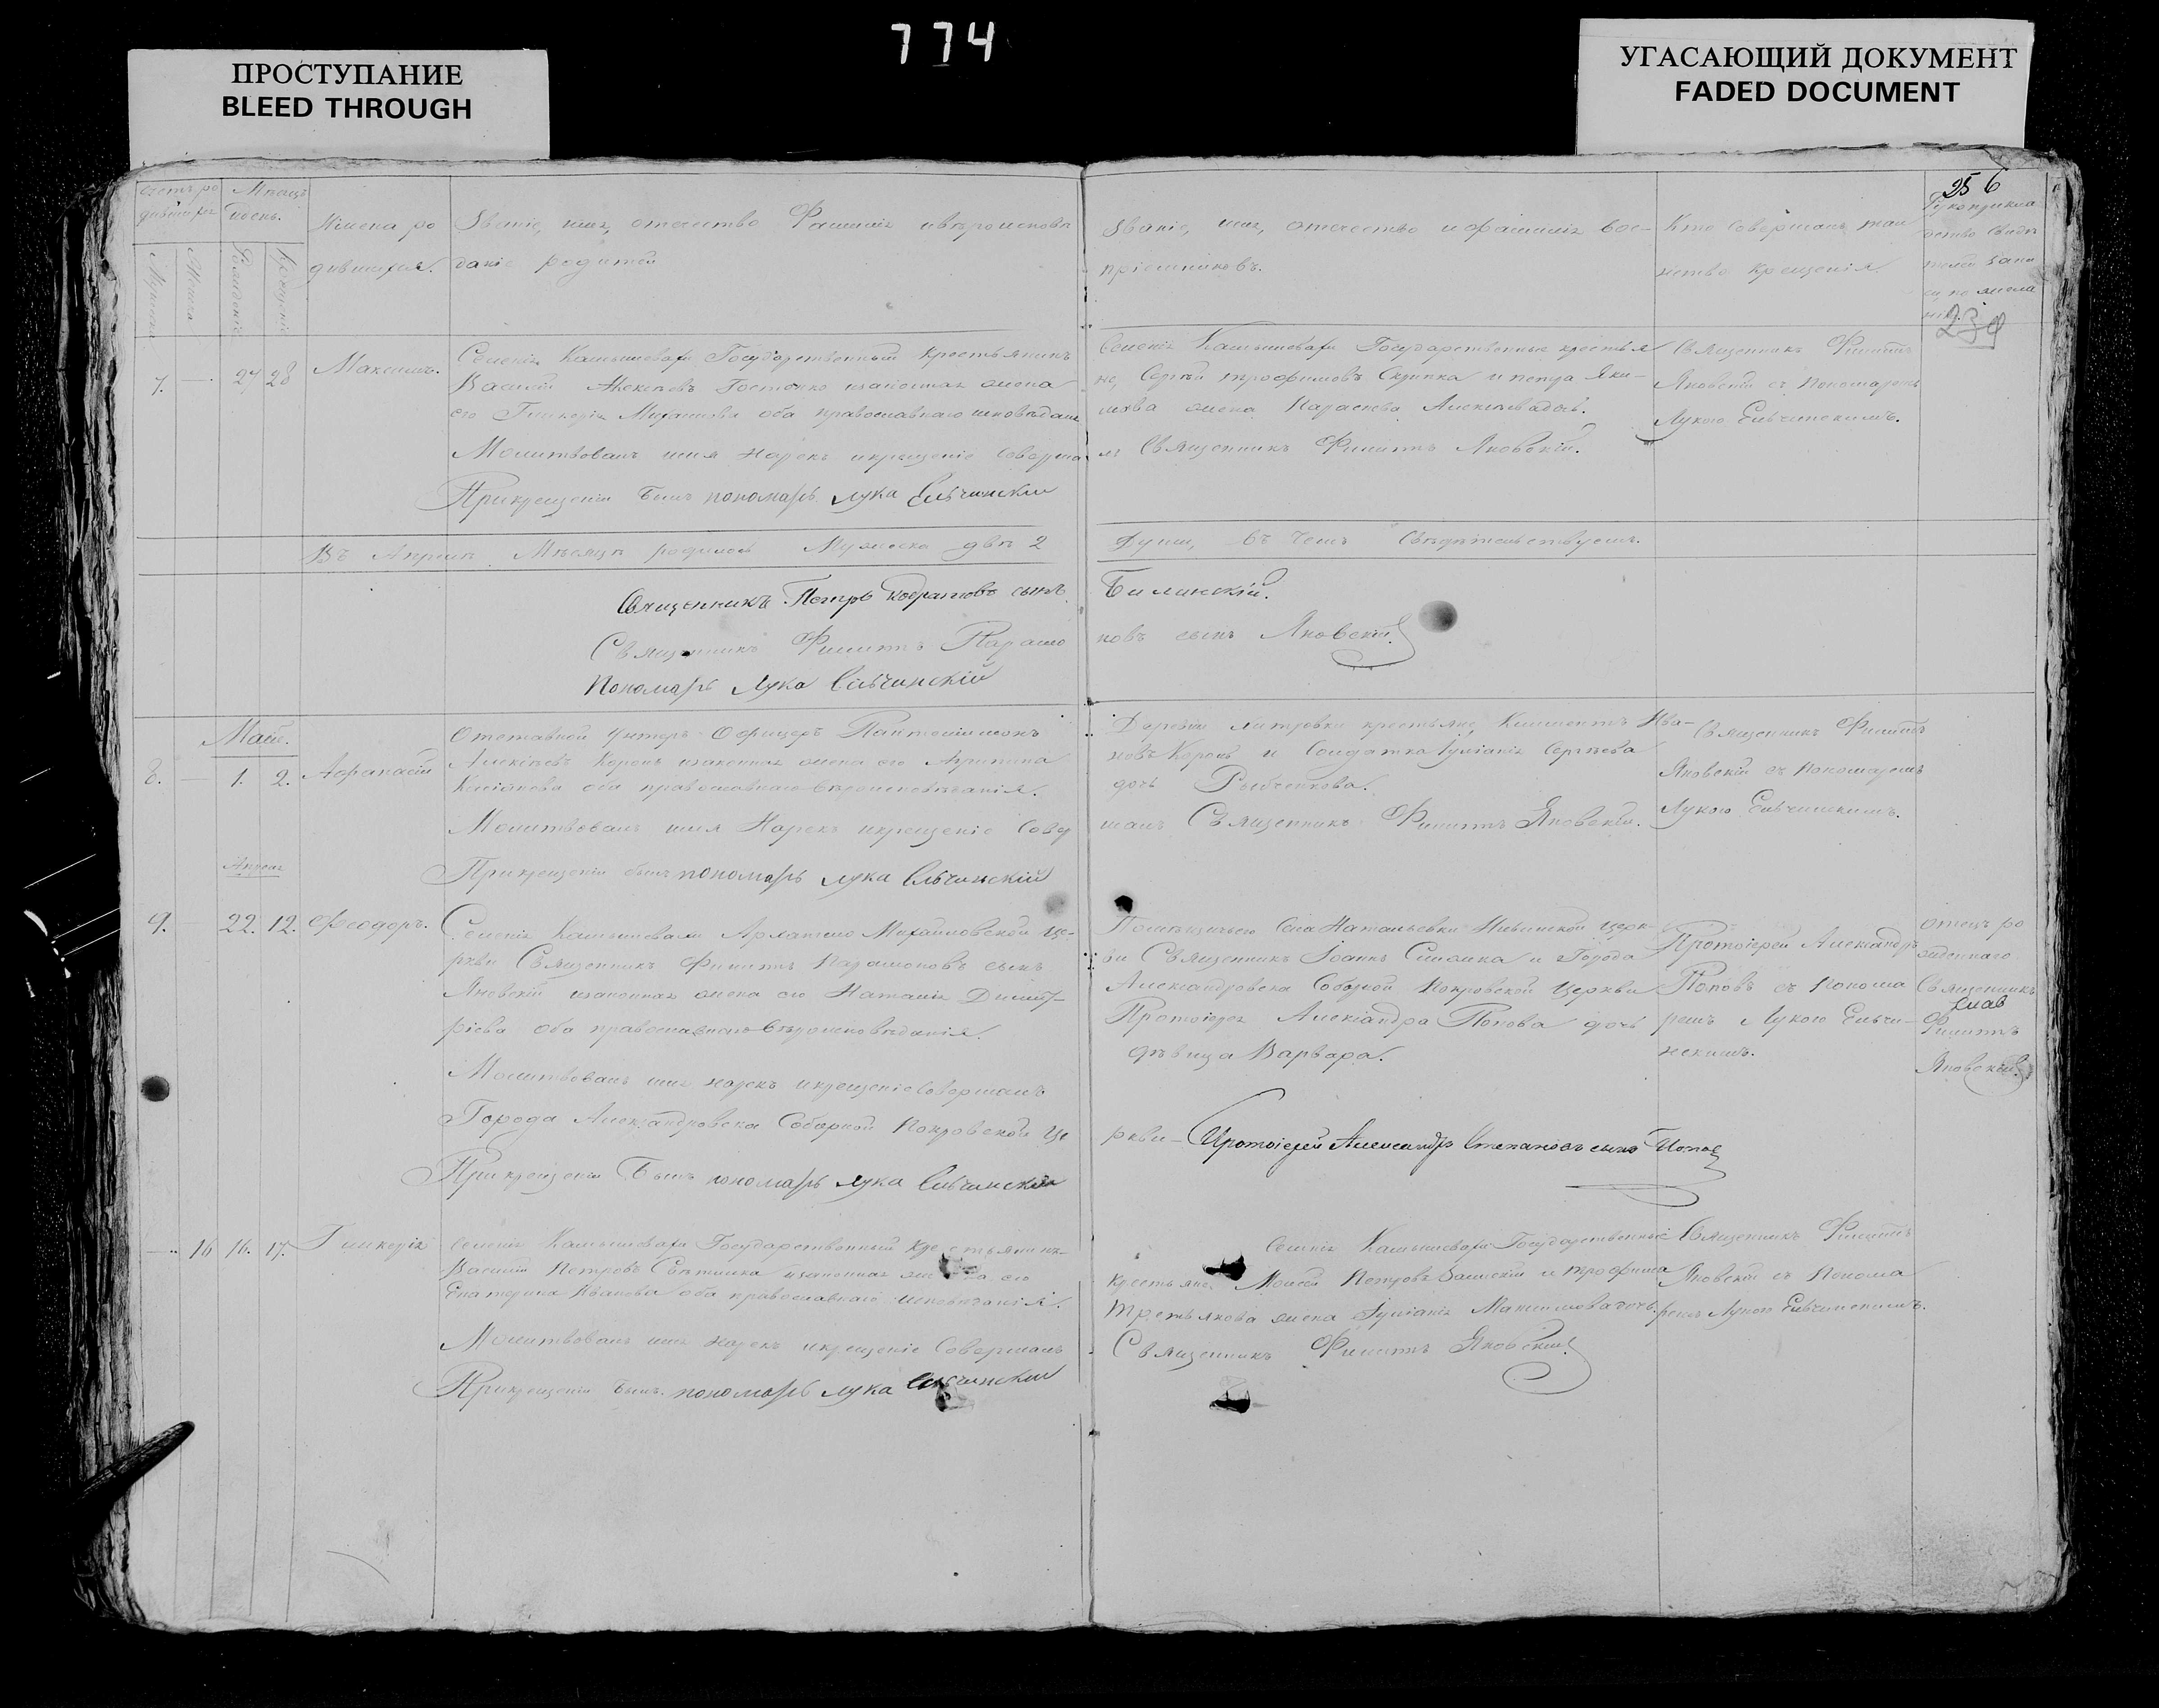 774
ПРОСТУПАНИЕ
BLEED THROUGH
УГАСАЮЩИЙ ДОКУМЕНТ
FADED DOCUMENT
256
239
Счетъ ро
дившихся
Мѣсяцъ
и день.
Мужеска
Женска
Рожденіе
Крещеніе
Имена ро
дившихся.
Званіе, имя, отечество Фамилія и вѣроисповѣ
даніе родителей
Званіе, имя, отечество и фамилія вос-
пріемниковъ.
Кто совершалъ таи
нство крещенія.
Рукоприкла
дство свидѣ
телей запи
си по жела
нію.
7. — 27 28 Максимъ.
Селенія Камышевахи Государственный крестьянинъ
Василій Алексѣевъ и законная жена
его Гликерія оба православнаго исповѣданія
Молитвовалъ имя нарекъ и крещеніе соверша
При крещеніи былъ пономарь Лука Ельчинскій
Селенія Камышевахи Государственные крестья
не, Сергѣй Трофимовъ Скрипка и Яки-
мова жена Параскева Алексѣева дочь.
лъ Священникъ Филиппъ Яновскій.
Священникъ Филиппъ
Яновскій съ пономаремъ
Лукою Ельчинскимъ.
Въ Апрѣлѣ Мѣсяцѣ родилось Мужеска двѣ 2
душы, въ чемъ свѣдѣтельствуемъ.
Священникъ Петръ Кодратовъ сынъ
Билинскій.
Священникъ Филиппъ Парамо
новъ сынъ Яновскій
Пономарь Лука Ельчинскій
Май.
8. — 1. 2. Афанасій
Отставной Унтеръ Офицеръ Пантелиімонъ
Алексѣевъ Коронь и законная жена его
оба православнаго вѣроисповѣданія.
Молитвовалъ имя Нарекъ и крещеніе совер
При крещеніи былъ пономарь Лука Ельчинскій
крестьяне, Климентъ Ива-
новъ Коронь и солдатка Іуліанія Сергѣева
дочь Рыбченкова.
шалъ Священникъ Филиппъ Яновскій.
Священникъ Филиппъ
Яновскій съ пономаремъ
Лукою Ельчинскимъ.
Апреля
9. — 22. 12. Феодоръ.
Селенія Камышевахи Архангело Михайловской це-
ркви Священникъ Филиппъ Парамоновъ сынъ
Яновскій и законная жена его Наталія Димит-
ріева оба православнаго вѣроисповѣданія.
Молитвовалъ имя нарекъ и крещеніе совершалъ
Города Александровска Соборной Покровской Це
При крещеніи былъ пономарь Лука Ельчинскій
села Натальевки церк
ви Священникъ Іоаннъ и Города
Александровска Соборной Покровской Церкви
Протоіерея Александра Попова дочь
дѣвица Варвара.
ркви — Протоіерей Александръ Степановъ сынъ Поповъ
Протоіерей Александръ
Поповъ съ понома
ремъ Лукою Ельчи-
нскимъ.
Отецъ ро
жденнаго
Священникъ
Филиппъ
Яновскій
— 16 16. 17. Гликерія
Селенія Камышевахи Государственный крестьянинъ
Василій Петровъ и законная жена его
Екатерина Иванова оба православнаго исповѣданія.
Молитвовалъ имя нарекъ и крещеніе совершалъ
При крещеніи былъ пономарь Лука Ельчинскій
Селенія Камышевахи Государственные
крестьяне Моисей Петровъ и Трофима
Третьякова жена Іуліанія Максимова дочь.
Священникъ Филиппъ Яновскій
Священникъ Филиппъ
Яновскій съ понома
ремъ Лукою Ельчинскимъ.